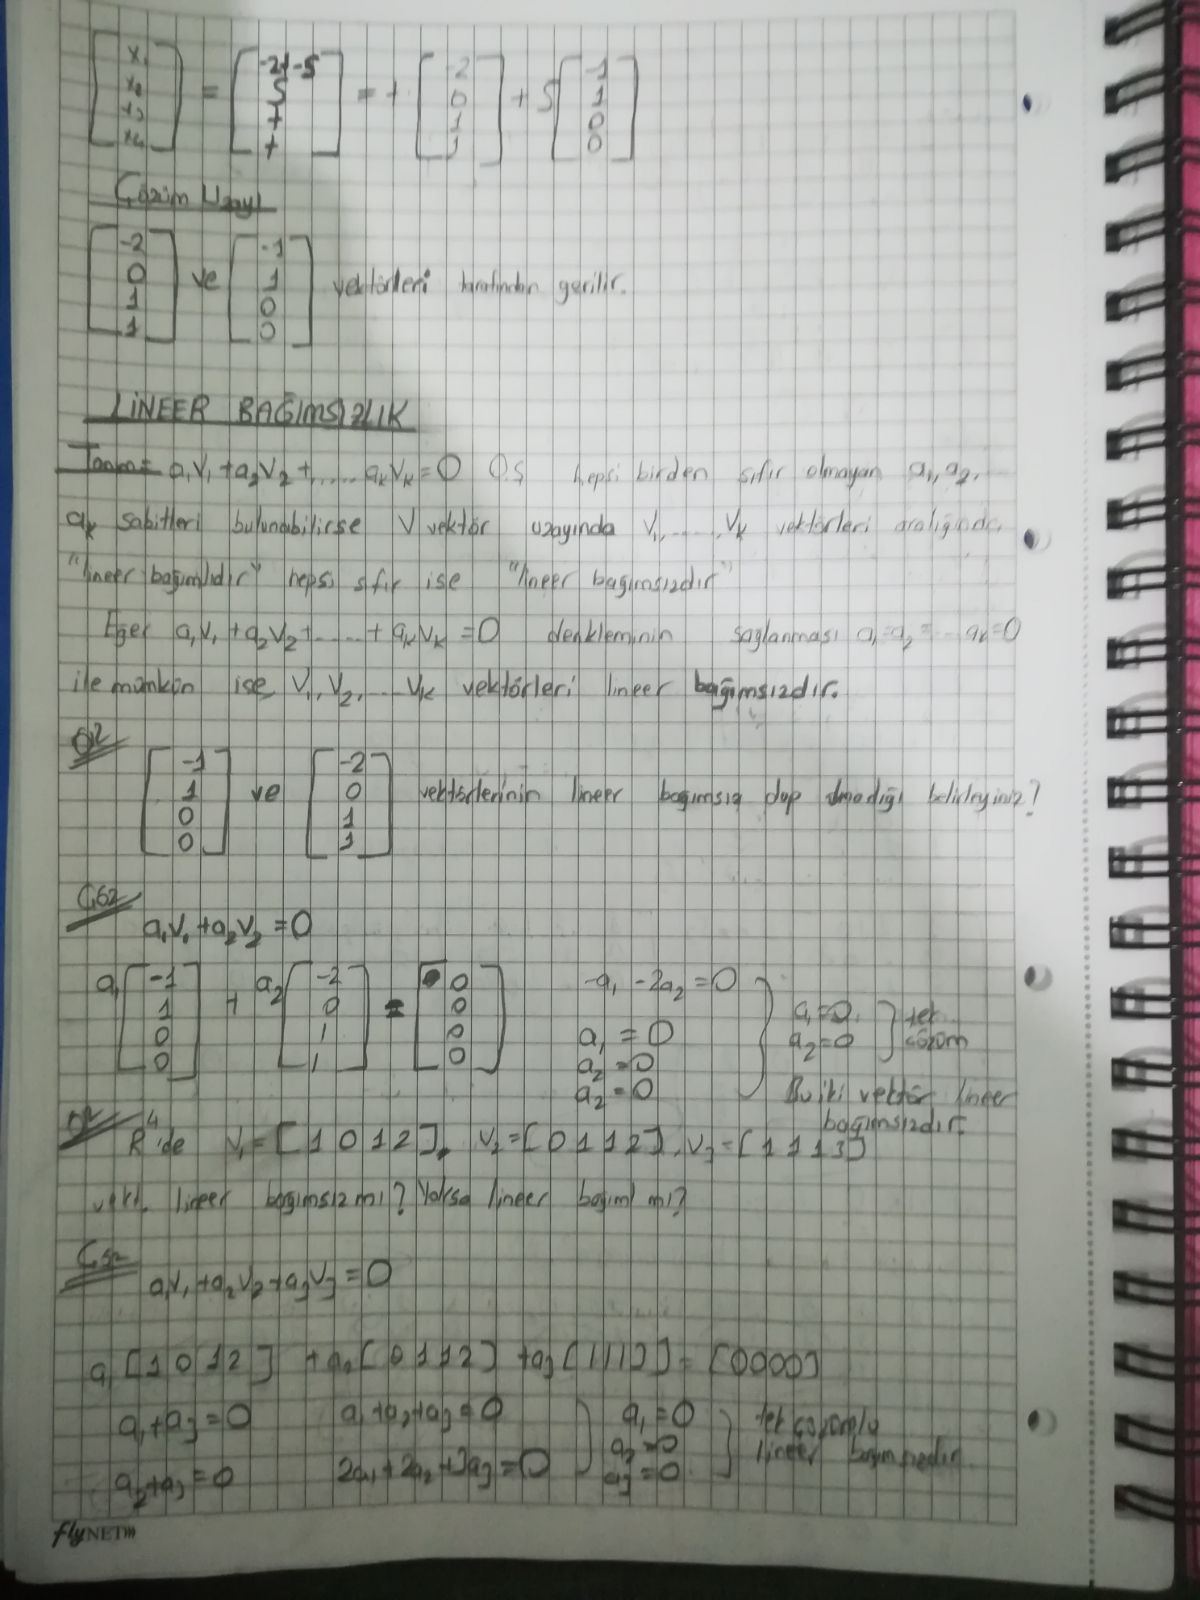 [x₁ x₂ x₃ x₄] = [-2t-s s t t] = t [-2 0 1 1] + s [-1 1 0 0]
Çözüm Uzayı
[-2 0 1 1] ve [-1 1 0 0] vektörleri tarafından gerilir.
LİNEER BAĞIMSIZLIK
Tanım= a₁v₁+a₂v₂+..... aₖvₖ=0 Ö.Ş hepsi birden sıfır olmayan a₁, a₂,
aₖ sabitleri bulunabilirse V vektör uzayında v₁,.....,vₖ vektörleri
"lineer bağımlıdır" hepsi sıfır ise "lineer bağımsızdır"
Eğer a₁v₁+a₂v₂+.....+aₖvₖ=0 denkleminin sağlanması a₁=a₂=...aₖ=0
ile mümkün ise v₁,v₂,...vₖ vektörleri lineer bağımsızdır.
Ör
[-1 1 0 0] ve [-2 0 1 1] vektörlerinin lineer bağımsız olup olmadığı belirleyiniz?
Çöz
a₁v₁+a₂v₂=0
a₁ [-1 1 0 0] + a₂ [-2 0 1 1] = [0 0 0 0]
-a₁-2a₂=0
a₁=0
a₂=0
a₂=0
a₁=0
a₂=0
tek
çözüm
Bu iki vektör lineer
bağımsızdır.
Ör
R⁴'de v₁=[1 0 1 2], v₂=[0 1 1 2], v₃=[1 1 1 3]
vekt. lineer bağımsız mı? Yoksa lineer bağıml mı?
Çöz
a₁v₁+a₂v₂+a₃v₃=0
a₁[1 0 1 2] +a₂[0 1 1 2] +a₃[1 1 1 3]=[0 0 0 0]
a₁+a₃=0 a₁+a₂+a₃=0
a₂+a₃=0 2a₁+2a₂+3a₃=0
a₁=0
a₂=0
a₃=0
tek çözümlü
lineer bağımsızdır.
flyNET